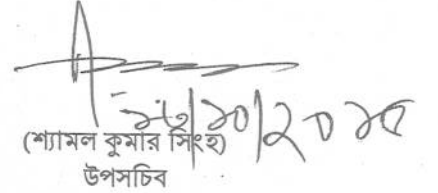 ২৬/১০/২০১৫
(শ্যামল কুমার সিংহ)
উপসচিব